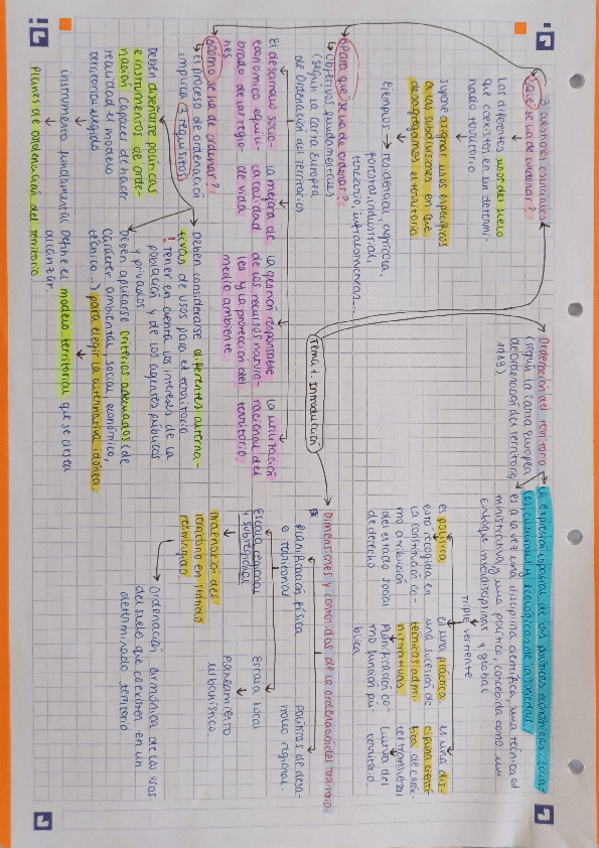 Tema 1. Introducción
Ordenación del territorio
(según la Carta Europea
de Ordenación del Territorio,
1983)
la expresión espacial de las políticas económicas, socia-
les, culturales y ecológicas de la sociedad
es a la vez una disciplina científica, una técnica ad
ministrativa y una política, concebida como un
enfoque interdisciplinar y global
Triple vertiente
es política
esta recogida en
la constitución co-
mo atribución
del estado social
de derecho
es una práctica
una sucesión de
técnicas admi-
nistrativas
planificación co-
mo función pú-
blica
es una dis-
ciplina cientí-
fica de carác-
ter transversal
del
territorio
3 cuestiones esenciales
¿Qué se va de ordenar?
Los diferentes usos del suelo
que coexisten en un determi-
nado territorio.
supone asignar usos específicos
a las subdivisiones en que
desagregamos el territorio
Ejemplos → residencial, agrícola,
forestal, industrial,
terciario, infraestructuras...
¿Para qué se va de ordenar?
Objetivos fundamentales
(según la Carta Europea
de Ordenación del Territorio
El desarrollo socio-
económico equili-
brado de las regio-
nes
la mejora de
la calidad
de vida
la gestión responsable
de los recursos natura-
les y la protección del
medio ambiente
la utilización
racional del
territorio
¿Cómo se va de ordenar?
El proceso de ordenación
implica 3 requisitos
Deben diseñarse políticas
e instrumentos de orde-
nación capaces de hacer
realidad el modelo
territorial elegido
instrumento fundamental
Planes de ordenación del territorio
Deben considerarse diferentes alterna-
tivas de usos para el territorio
! Tener en cuenta los intereses de la
población y de los agentes públicos
y privados.
Deben aplicarse criterios adecuados (de
carácter ambiental, social, económico,
técnico...) para elegir la alternativa idónea
Define el modelo territorial que se desea
alcanzar.
Dimensiones y contenidos de la ordenación del territorio
planificación física
o territorial
políticas de desa-
rrollo regional.
Escala regional
y subregional
Escala local
Ordenación del
territorio en sentido
restringido
Planeamiento
urbanístico.
Ordenación armónica de los usos
del suelo que coexisten en un
determinado territorio